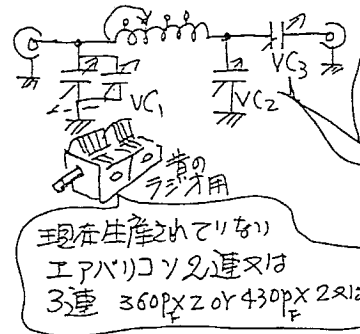 VC3
VC1
VC2
昔の
ラジオ用
現在生産されていない
エアバリコン2連又は
3連 360PF×2 OR 430PF×2又は